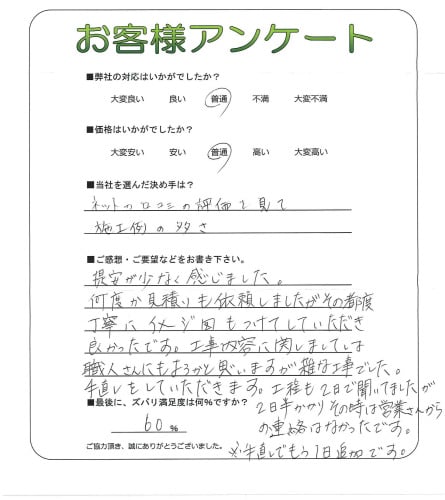 お客様アンケート
■弊社の対応はいかがでしたか?
大変良い 良い 普通 不満 大変不満
■価格はいかがでしたか?
大変安い 安い 普通 高い 大変高い
■当社を選んだ決め手は?
ネットの口コミの評価を見て
施工例の多さ
■ご感想・ご要望などをお書き下さい。
提案が少なく感じました。
何度か見積りも依頼しましたがその都度
丁寧にイメージ図もつけてしていただき
良かったです。工事内容に関しましては
職人さんにもよるかと思いますが雑な工事でした。
手直しをしていただきます。工程も2日で聞いてましたが
2日半かかりその時は営業さんから
の連絡はなかったです。
※手直しでもう1日追加です。
■最後に、ズバリ満足度は何%ですか?
60 %
ご協力頂き、誠にありがとうございました。